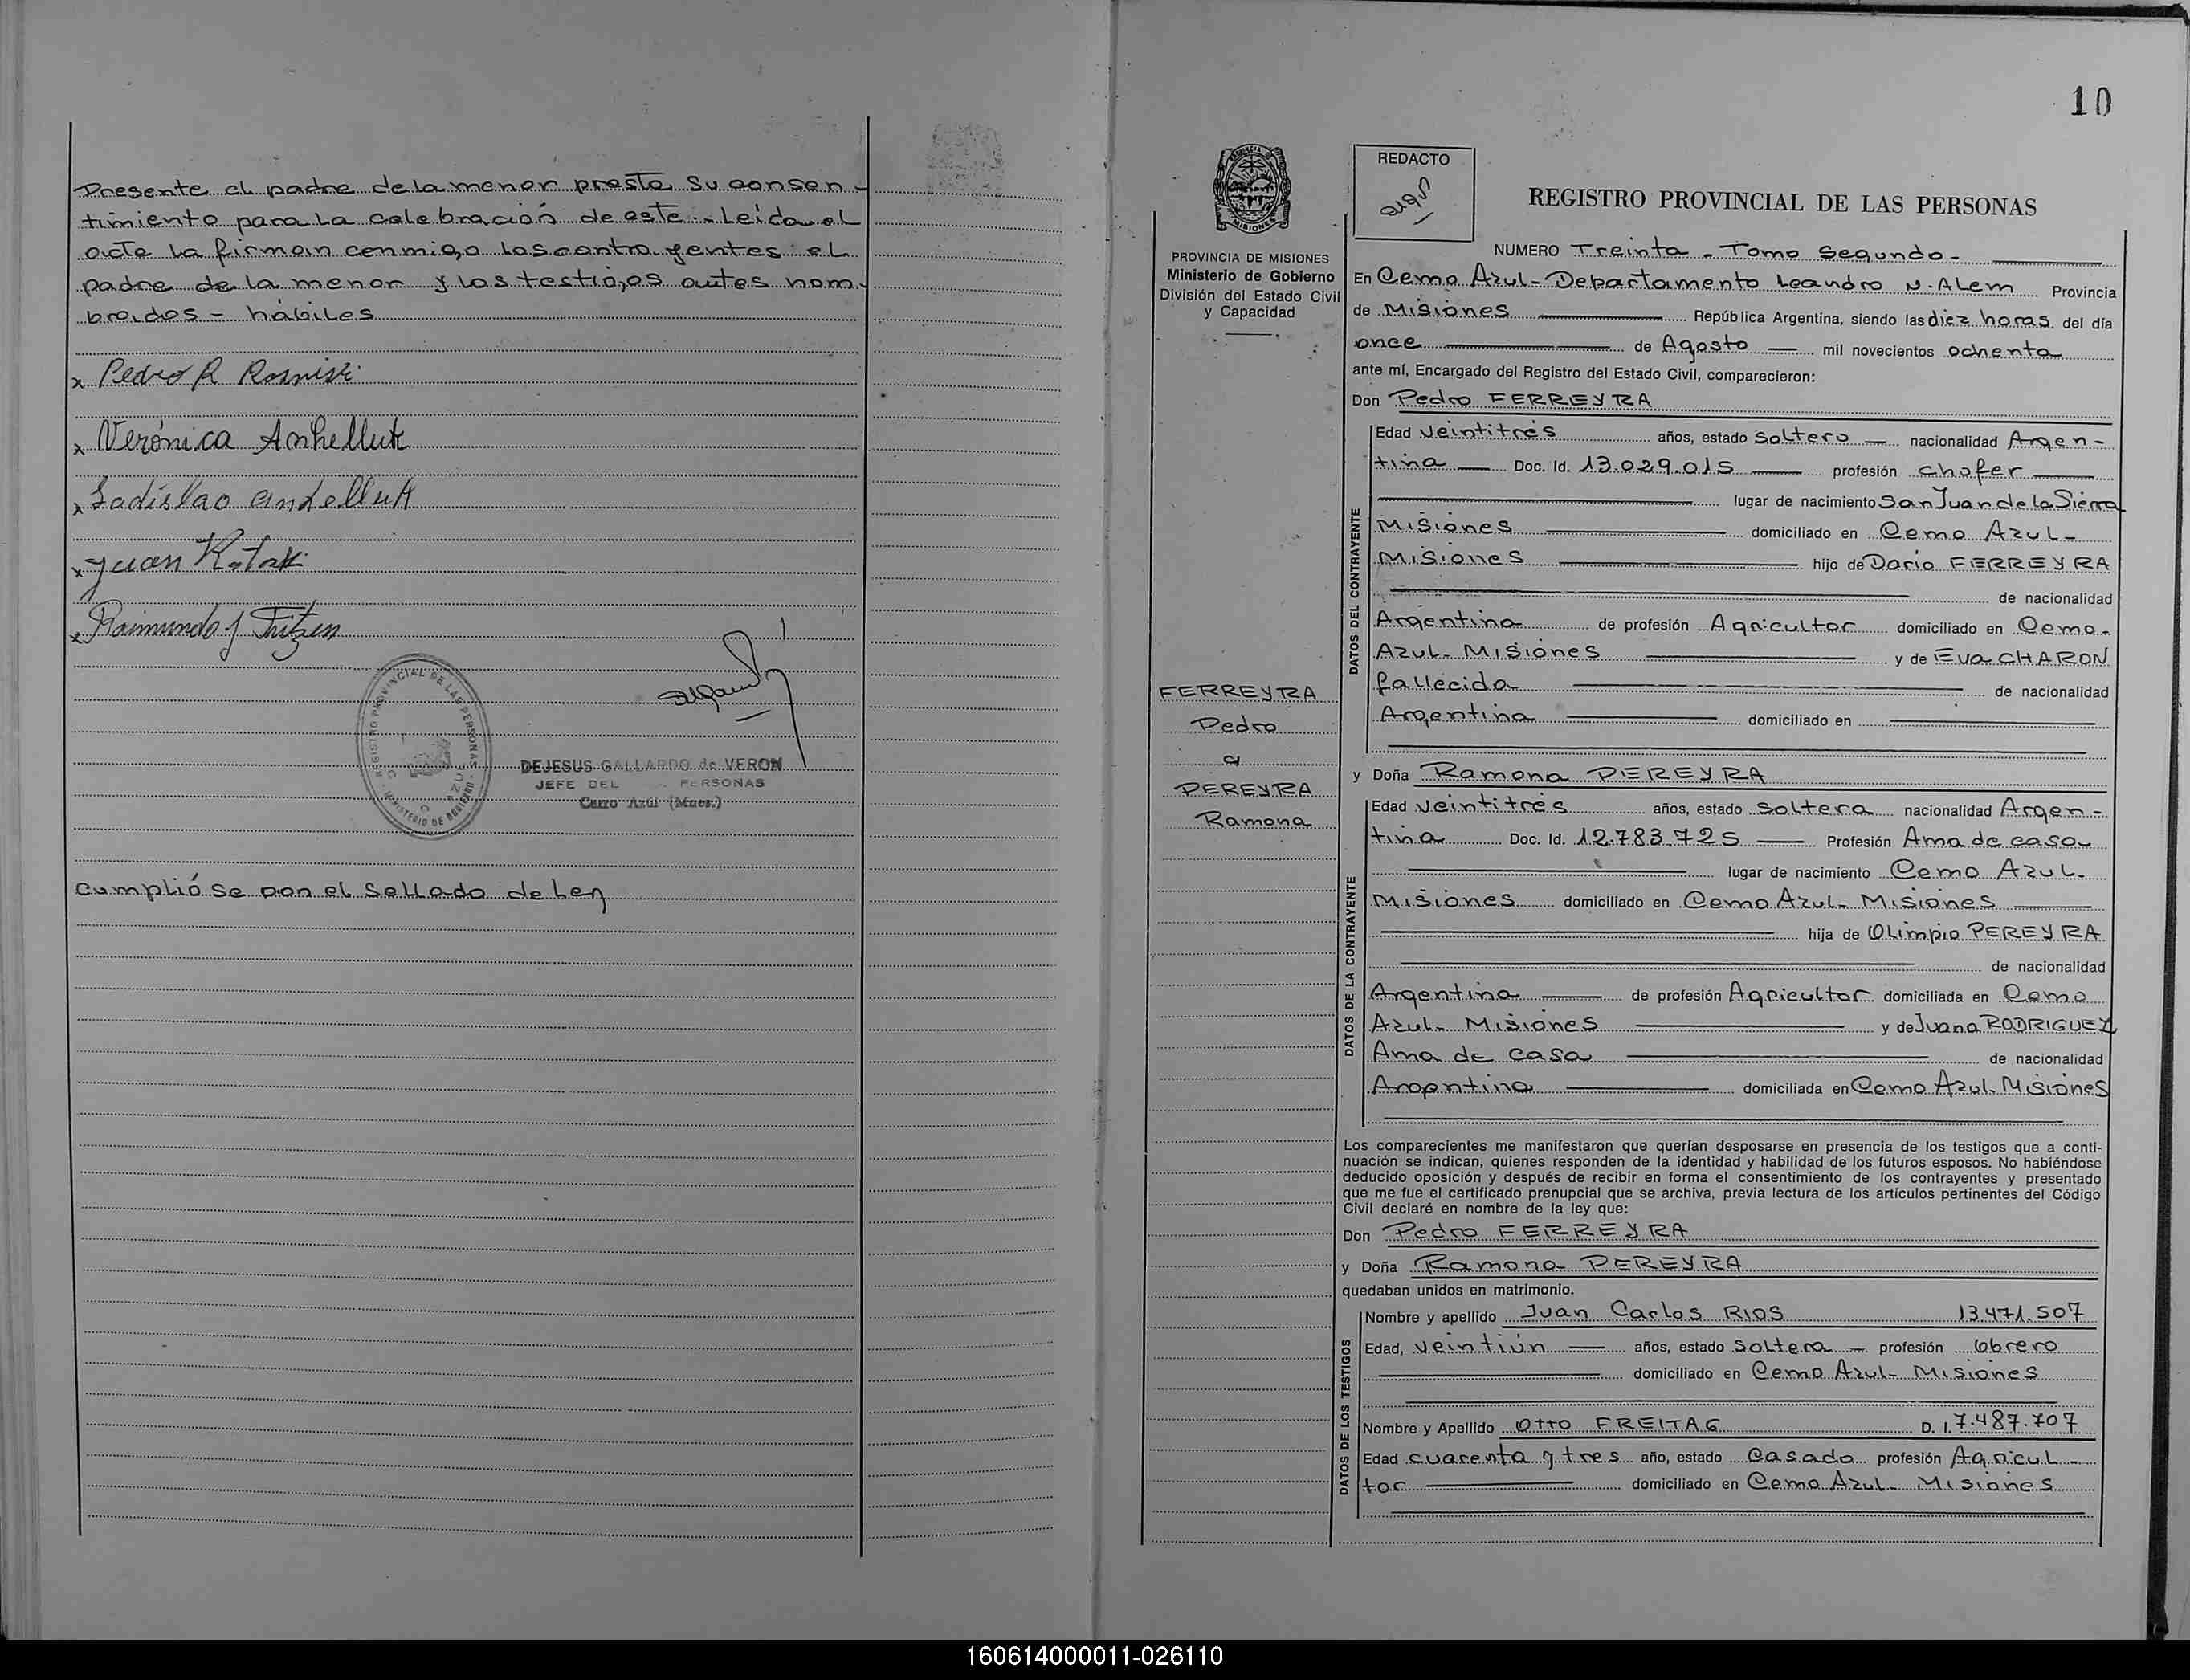 Presente el padre de la menor presta su consen-
timiento para la celebración de este.- Leída el
acta la firman conmigo los contrayentes el
padre de la menor y los testigos antes nom-
brados - hábiles
x Pedro R
x Verónica Anhelluk
x Ladislao Anhelluk
x Juan
x Raimundo J Fritzen
REGISTRO PROVINCIAL DE LAS PERSONAS
MINISTERIO DE GOBIERNO
DEJESUS GALLARDO de VERON
JEFE DEL PERSONAS
Cerro Azúl (Mnes.)
Cumplióse con el sellado de Ley
10
REDACTO
PROVINCIA DE MISIONES
Ministerio de Gobierno
División del Estado Civil
y Capacidad
FERREYRA
Pedro
c/
PEREYRA
Ramona
REGISTRO PROVINCIAL DE LAS PERSONAS
NUMERO Treinta - Tomo Segundo -
En Cerro Azul - Departamento Leandro N. Alem Provincia
de Misiones República Argentina, siendo las diez horas del día
once de Agosto mil novecientos ochenta
ante mí, Encargado del Registro del Estado Civil, comparecieron:
Don Pedro FERREYRA
DATOS DEL CONTRAYENTE
Edad veintitrés años, estado soltero nacionalidad Argen-
tina Doc. Id. 13.029.015 profesión chofer
lugar de nacimiento San Juan de la Sierra
Misiones domiciliado en Cerro Azul -
Misiones hijo de Dario FERREYRA
de nacionalidad
Argentina de profesión Agricultor domiciliado en Cerro-
Azul - Misiones y de Eva CHARON
fallecida de nacionalidad
Argentina domiciliado en
y Doña Ramona PEREYRA
DATOS DE LA CONTRAYENTE
Edad veintitrés años, estado soltera nacionalidad Argen-
tina Doc. Id. 12.783.725 Profesión Ama de casa
lugar de nacimiento Cerro Azul -
Misiones domiciliado en Cerro Azul - Misiones
hija de Olimpio PEREYRA
de nacionalidad
Argentina de profesión Agricultor domiciliada en Cerro
Azul - Misiones y de Juana RODRIGUEZ
Ama de casa de nacionalidad
Argentina domiciliada en Cerro Azul - Misiones
Los comparecientes me manifestaron que querían desposarse en presencia de los testigos que a conti-
nuación se indican, quienes responden de la identidad y habilidad de los futuros esposos. No habiéndose
deducido oposición y después de recibir en forma el consentimiento de los contrayentes y presentado
que me fue el certificado prenupcial que se archiva, previa lectura de los artículos pertinentes del Código
Civil declaré en nombre de la ley que:
Don Pedro FERREYRA
y Doña Ramona PEREYRA
quedaban unidos en matrimonio.
DATOS DE LOS TESTIGOS
Nombre y apellido Juan Carlos RIOS 13.471.507
Edad, veintiún años, estado soltera profesión Obrero
domiciliado en Cerro Azul - Misiones
Nombre y Apellido Otto FREITAG D. I. 7.487.707
Edad cuarenta y tres año, estado Casado profesión Agricul-
tor domiciliado en Cerro Azul - Misiones
160614000011-026110